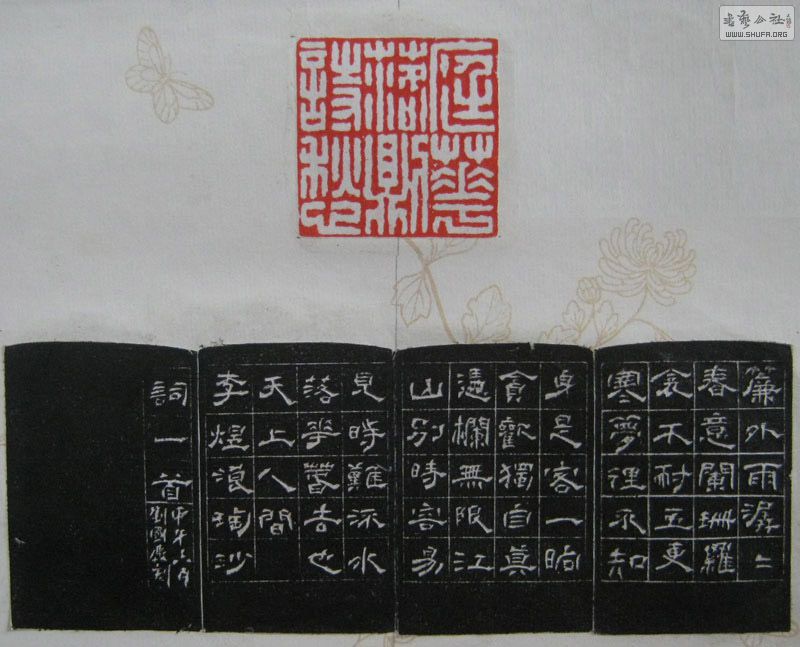 书艺公社
WWW.SHUFA.ORG
簾外雨潺二
春意闌珊羅
衾不耐五更
寒夢裡不知
身是客一晌
貪歡獨自莫
憑欄無限江
山別時容易
見時難流水
落花春去也
天上人間
李煜浪淘沙
詞一首
甲午六月
劉國慶刻